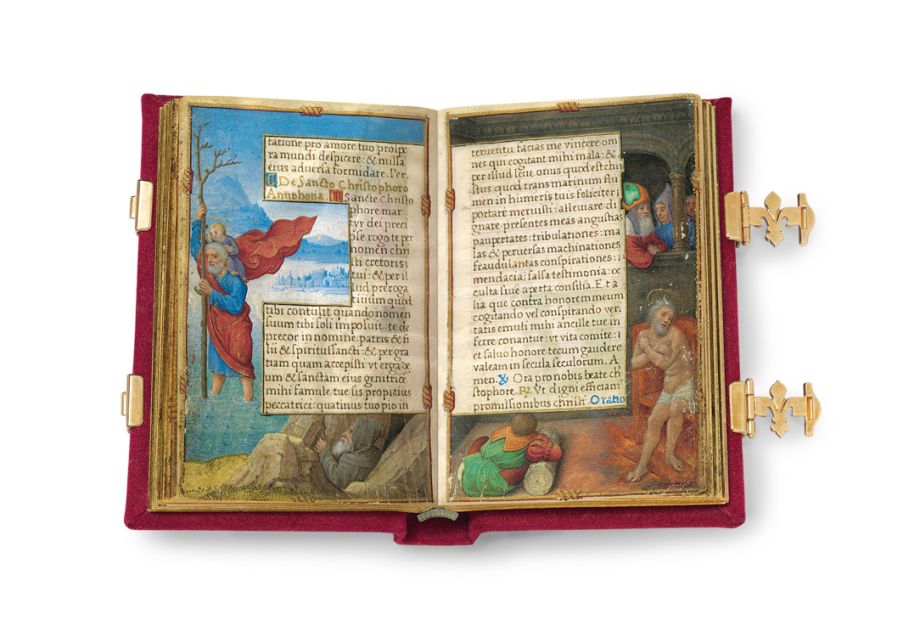 tatione pro amore tuo prospe
ra mundi despicere: & nulla
eius adversa formidare. Per.
De Sancto Christophoro
Antiphona. Sancte Christo
phore mar
tyr dei preci
ose rogo te per
nomen chri
sti cretoris i
tui: & per il
lud preroga
tiuum quod
tibi contulit quando nomen
suum tibi soli imposuit te de
precor in nomine. patris & fi
lii & spiritussancti: & per gra
tiam quam accepisti vt erga de
um & sanctam eius genitrice
mihi famule tue sis propicius
peccatrici: quatinus tuo pio in
teruentu facias me vincere om
nes qui cogitant mihi mala: &
per illud leue onus quod est chri
stus quod trans marinum flu
men in humeris tuis feliciter i
portare meruisti: alleuiare di
gnare presentes meas angustias
paupertates: tribulationes: ma
las & peruersas machinationes
fraudulantas conspirationes:
mendacia: falsa testimonia: oc
culta siue aperta consilia. Et a
lia que contra honorem meum
cogitando vel conspirando veri
tatis emuli mihi ancille tue in
ferre conantur: vt vita comite: i
et saluo honore tecum gaudere
valeam in secula seculorum. A
men. ℣ Ora pro nobis beate ch
stophore. ℟. Vt digni efficiam
promissionibus christi. Oratio